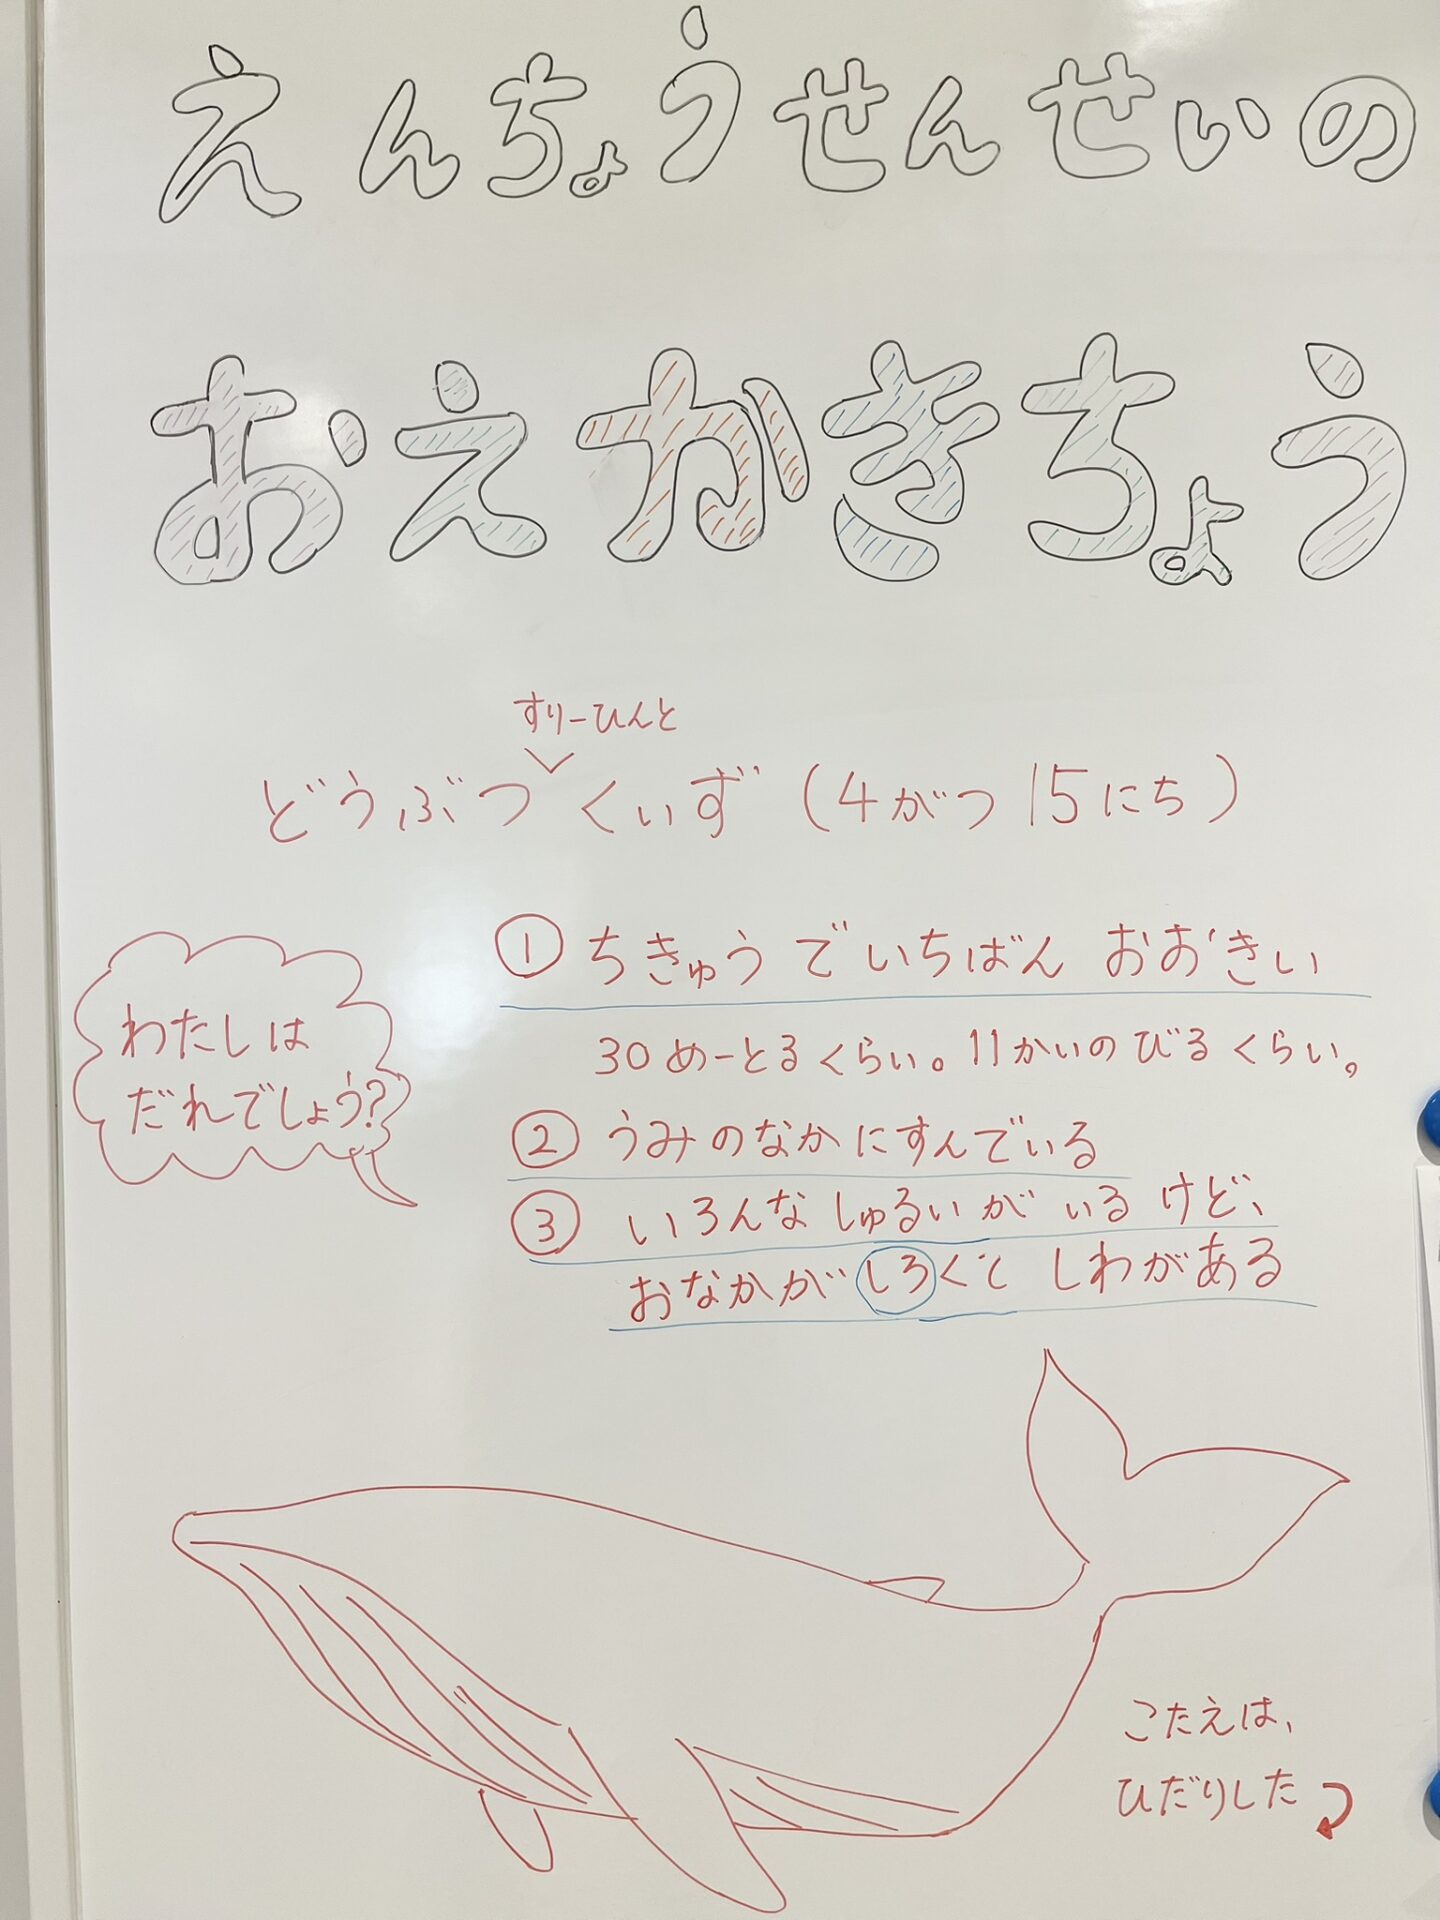 えんちょうせんせいの
おえかきちょう
すりーひんと
どうぶつくいず(4がつ15にち)
わたしは
だれでしょう?
① ちきゅうでいちばん おおきい
30めーとるくらい。11かいのびるくらい。
② うみのなかにすんでいる
③ いろんなしゅるいがいるけど、
おなかがしろくて しわがある
こたえは、
ひだりした